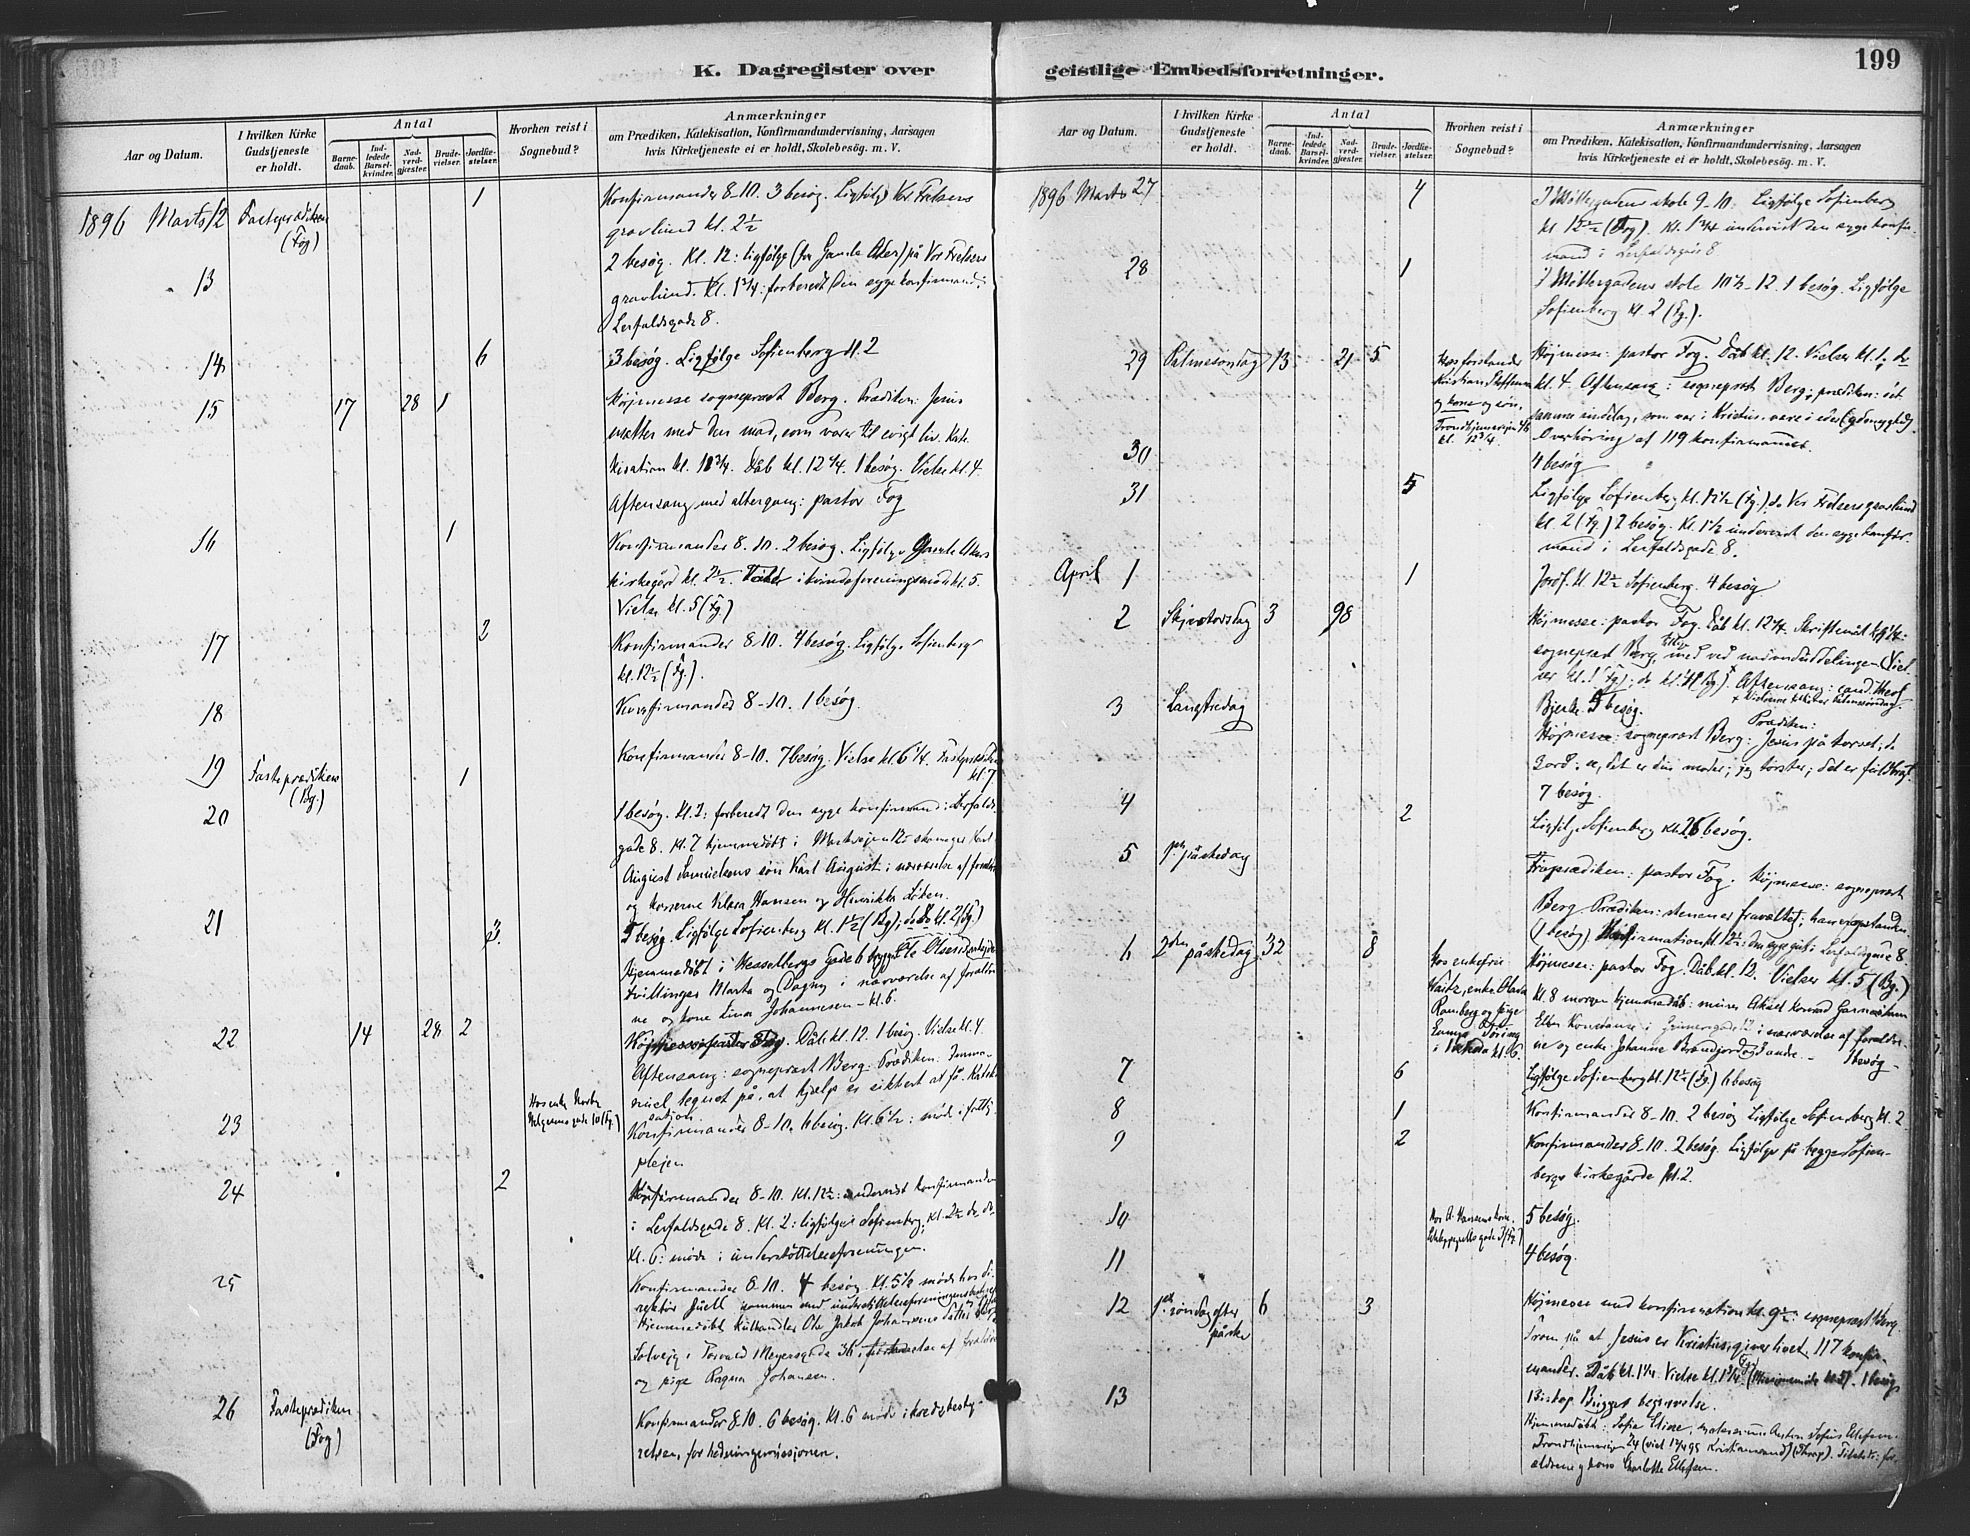 K. Dagregister over
Aar og Datum.
I hvilken Kirke Gudstjeneste er holdt.
Antal
Barnedaab.
Indledede Barselkvinder.
Nadverdgjæster.
Brudevielser.
Jordfæstelser.
Hvorhen reist i Sognebud?
Anmærkninger
om Prædiken, Katekisation, Konfirmandundervisning, Aarsagen
hvis Kirketjeneste ei er holdt, Skolebesøg. m. V.
1896 Marts 12 Fasteprædiken (Fog) 1 Konfirmander 8-10. 3 besøg. Ligfølge Vor Frelsers
gravlund kl. 2½
13 2 besøg. Kl. 12: ligfølge (for Gamle Aker) på Vor Frelsers
gravlund. Kl. 1¾: forberedt den syge konfirmand i
Lerfaldsgade 8.
14 6 3 besøg. Ligfølge Sofienberg kl. 2
15 17 28 1 Højmesse sogneprest Berg. Prædiken: Jesus
mætter med den mad, som varer til evigt liv. Kate
kisation kl. 11¾. Dåb kl. 12¼. 1 besøg. Vielse kl. 4.
Aftensang med altergang: pastor Fog
16 1 Konfirmander 8-10. 2 besøg. Ligfølge Gamle Akers
kirkegård kl. 2½. i kvindeforeningsmøde kl. 5.
Vielse kl. 5 (Fg.)
17 2 Konfirmander 8-10. 4 besøg. Ligfølge Sofienberg
kl. 12½ (Fg.).
18 Konfirmander 8-10. 1 besøg.
19 Fasteprædiken (Bg.) 1 Konfirmander 8-10. 7 besøg. Vielse kl. 6¼. Fasteprædiken
kl. 7
20 1 besøg. Kl. 2: forberedt den syge konfirmand i Lerfalds
gade 8. Kl. 7 hjemmedøbt i Markvejen 12 skomager Karl
August Samuelsens søn Karl August i nærværelse af forældre
og konerne Klara Hansen og Henrikke Løken.
21 3. 5 besøg. Ligfølge Sofienberg kl. 1½ (Bg), do do kl. 2 (Fg.)
Hjemmedøbt i Hesselbergs Gade 6 Ole Olsens
tvillinger Marta og Dagny i nærværelse af forældre
ne og kone Lina Johannesen - kl. 6.
22 14 28 2 Højmesse: pastor Fog. Dåb kl. 12. 1 besøg. Vielse kl. 4.
Aftensang: sogneprest Berg: Prædiken: Imma-
nuel tegnet på, at hjælp er sikkert at få. Kateki
sation.
23 Konfirmander 8-10. 6 besøg. Kl. 6½: møde i fattig
plejen
24 2 Konfirmander 8-10. Kl. 12½: undervist konfirmanden
i Lerfaldsgade 8. Kl. 2: ligfølge Sofienberg, kl. 2½ do, do.
Kl. 6: møde i understøttelsesforeningen.
25 Konfirmander 8-10. 4 besøg. Kl. 5½ møde hos di-
rektør Juell sammen med understøttelsesforeningens
Hjemmedøbt kulhandler Ole Jakob Johansens datter
Solvejg i Torvald Meyersgade 36 i nærværelse af forældre
og pige Ragna Johansen.
26 Fasteprædiken (Fog) Konfirmander 8-10. 6 besøg. Kl. 6 møde i kredsbesty-
relsen for hedningemissjonen.
geistlige Embedsforretninger.
199
Aar og Datum.
I hvilken Kirke Gudstjeneste er holdt.
Antal
Barnedaab.
Indledede Barselkvinder.
Nadverdgjæster.
Brudevielser.
Jordfæstelser.
Hvorhen reist i Sognebud?
Anmærkninger
om Prædiken, Katekisation, Konfirmandundervisning, Aarsagen
hvis Kirketjeneste ei er holdt, Skolebesøg. m. V.
1896 Marts 27 4 I Møllergadens skole 9-10. Ligfølge Sofienberg
kl. 12½ (Fog). Kl. 1¾ undervist den syge konfir-
mand i Lerfaldsgade 8
28 1 I Møllergadens skole 10½-12. 1 besøg. Ligfølge
Sofienberg kl. 2 (Fg.).
29 Palmesøndag 13 21 5 Højmesse: pastor Fog. Dåb kl. 12. Vielser kl. 1, do
kl. 4. Aftensang: sogneprest Berg; prædiken: det
samme sindelag, som var i Kristus, være i eder (ydmyghed).
Overhøring af 119 konfirmander.
30 4 besøg
31 5 Ligfølge Sofienberg kl. 12½ (Fg.), do Vor Frelsers gravlund
kl. 2 (Fg.) 2 besøg. Kl. 1½ undervist den syge konfir-
mand i Lerfaldsgade 8.
April 1 1 Jordf. kl. 12½ Sofienberg. 4 besøg
2 Skjærtorsdag 3 98 Højmesse: pastor Fog. Dåb kl. 12¼. Skriftemål
sogneprest Berg, med ved nadveruddelingen. Viel
ser kl. 1 (Fg); do kl. (Bg). Aftensang: cand. theol
Bjerke. 5 besøg.
3 Langfredag Højmesse: sogneprest Berg: Prædiken: Jesus på korset; de
3 ord: se, det er din moder; jeg tørster; det er fuldbragt
7 besøg.
4 2 Ligfølge Sofienberg kl. 2 6 besøg.
5 1ste påskedag Frøprædiken: pastor Fog. Højmesse: sogneprest
Berg. Prædiken: stenen er fravæltet; han er opstanden.
(1 besøg) Konfirmation kl. 12½: den syge gut i Lerfaldsgade 8
6 2den påskedag 32 8 Højmesse: pastor Fog. Dåb kl. 12. Vielser kl. 5 (Bg.)
Kl. 8 morgen hjemmedåb:
1 besøg
7 6 Ligfølge Sofienberg kl. 12½ (Fg.) 6 besøg
8 1 Konfirmander 8-10. 2 besøg Ligfølge Sofienberg kl. 2
9 2 Konfirmander 8-10. 2 besøg. Ligfølge på begge Sofien-
bergs kirkegårde kl. 2.
10 5 besøg.
11 4 besøg.
12 1ste søndag efter påske 6 3 Højmesse med konfirmation kl. 9½: sogneprest Berg.
Troen på at Jesus er Kristus, giver livet. 117 konfir-
mander. Dåb kl. 1¼. Vielse kl. 1¾ 1 besøg
13 Biskop Bugges begravelse.
Hjemmedøbt: Sofie Elise,
Trondhjemsvejen 24
ældrene og kone Charlotte Ellefsen.